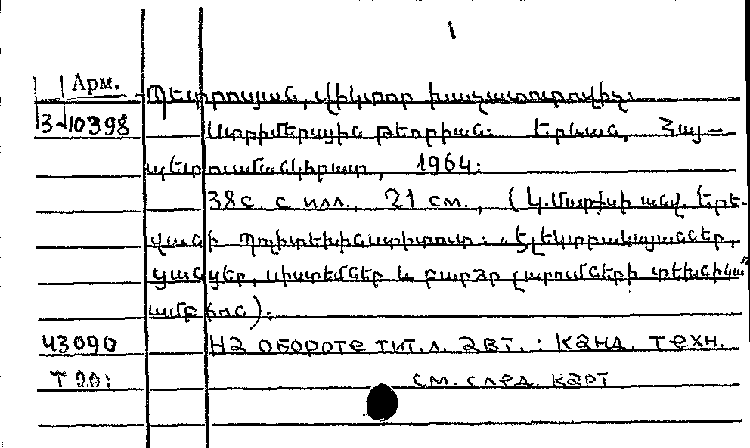 1
Арм.
Պետրոսյան, Վիկտոր Խաչատուրովիչ։
3-10398 Ատրիմերային թեորիան։ Երևան, Հայ-
պետուսմանկհրատ, 1964։
38с. с илл., 21 см., (Կ.Մարքսի անվ. Երե-
վանի Պոլիտեխինստիտուտ։ Էլեկտրակայաններ,
ցանցեր, սիստեմներ և բարձր լարումների տեխնիկա
ամբիոն)։
43090 На обороте тит.л. авт.: канд. техн.
см. след. карт